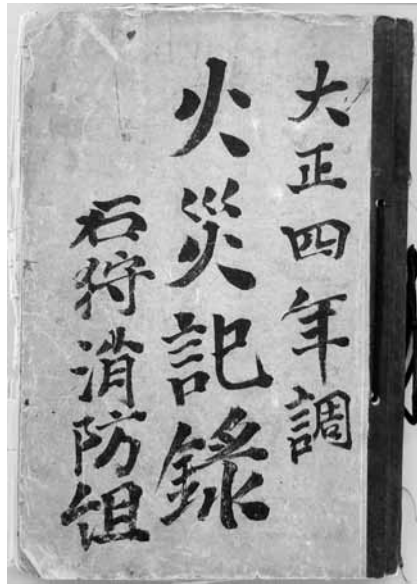 大正四年調
火災記錄
石狩消防組